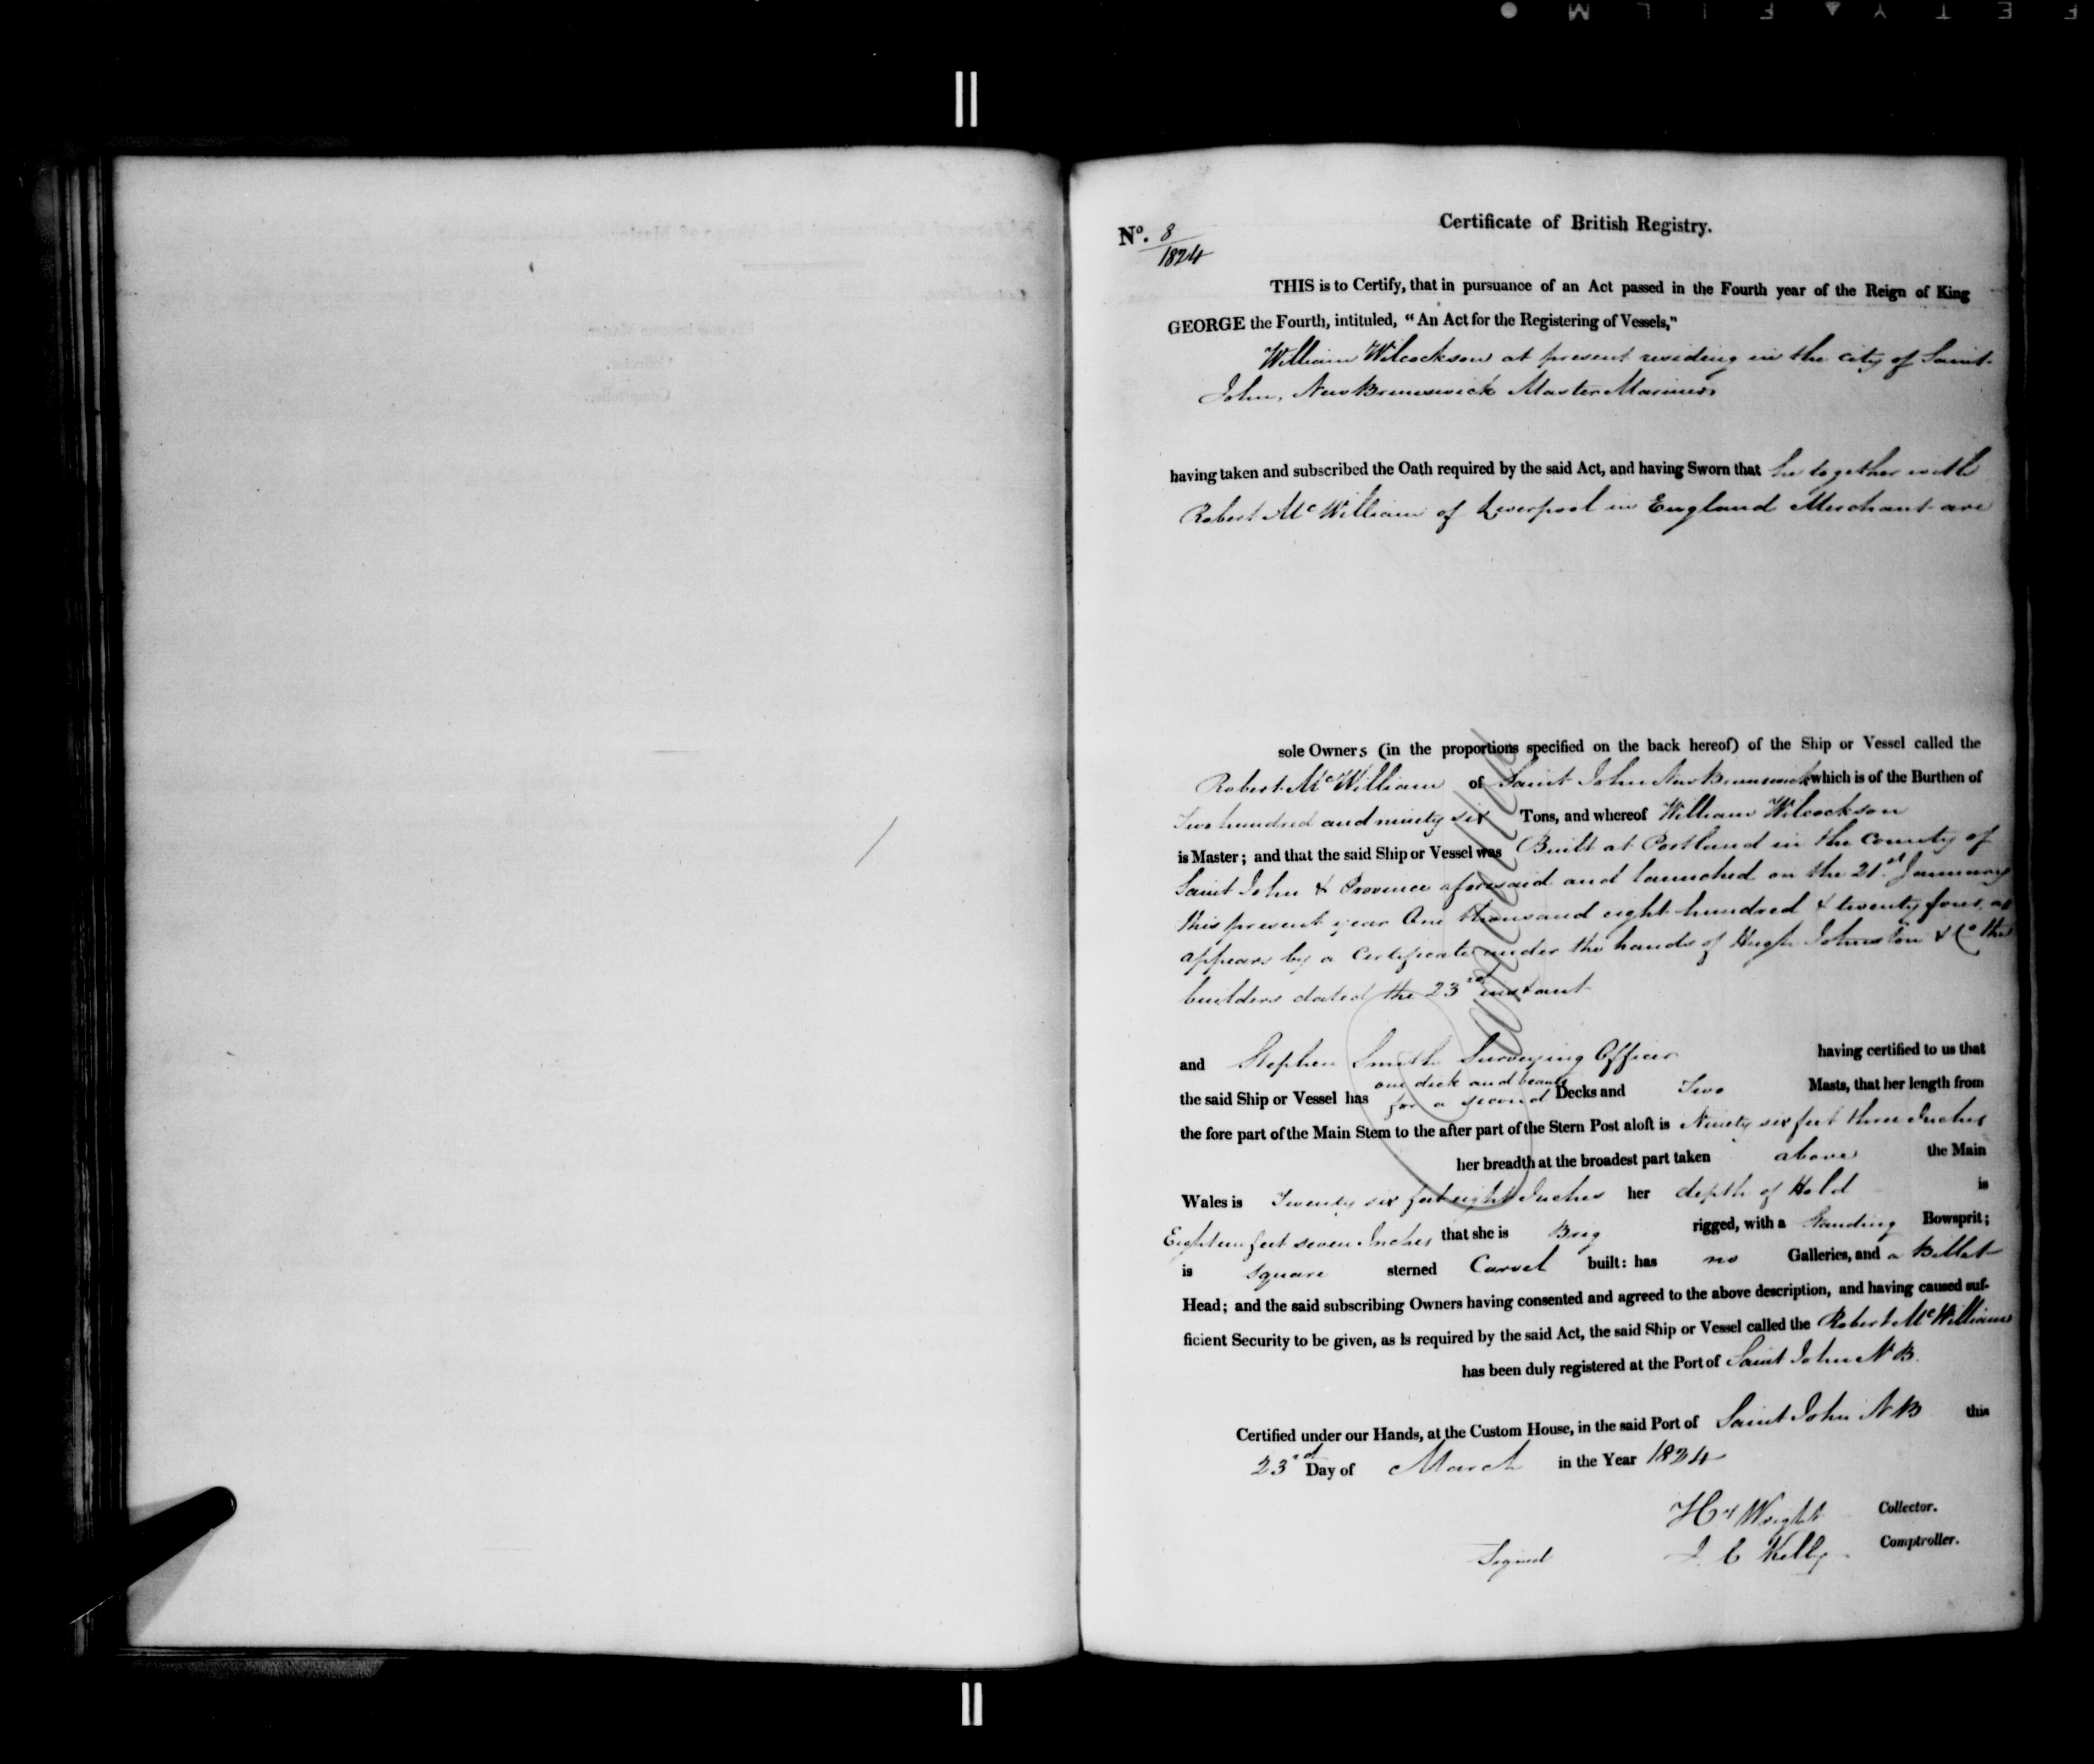 SAFETY▲FILM ●
Certificate of British Registry.
No. 8
1824
THIS is to Certify, that in pursuance of an Act passed in the Fourth year of the Reign of King
GEORGE the Fourth, intituled, "An Act for the Registering of Vessels,"
William Wilcockson at present residing in the city of Saint
John, New Brunswick Master Mariner
having taken and subscribed the Oath required by the said Act, and having Sworn that he together with
Robert Mc William of Liverpool in England Merchant are
sole Owners (in the proportions specified on the back hereof) of the Ship or Vessel called the
Robert Mc William of Saint John New Brunswick which is of the Burthen of
Two hundred and ninety six Tons, and whereof William Wilcockson
is Master; and that the said Ship or Vessel was Built at Portland in the County of
Saint John & Province aforesaid and launched on the 21st January
this present year One thousand eight hundred & twenty four, as
appears by a Certificate under the hands of Hugh Johnston & Co the
builders dated the 23rd instant
Cancelled
and Stephen Smith Surveying Officer having certified to us that
one deck and beams
the said Ship or Vessel has for a second Decks and Two Masts, that her length from
the fore part of the Main Stem to the after part of the Stern Post aloft is Ninety six feet three Inches
her breadth at the broadest part taken above the Main
Wales is Twenty six feet eight Inches her depth of Hold is
Eighteen feet seven Inches that she is Brig rigged, with a Standing Bowsprit;
is square sterned Carvel built: has no Galleries, and a Billet
Head; and the said subscribing Owners having consented and agreed to the above description, and having caused suf-
ficient Security to be given, as is required by the said Act, the said Ship or Vessel called the Robert Mc William
has been duly registered at the Port of Saint John N B.
Certified under our Hands, at the Custom House, in the said Port of Saint John N B this
23rd Day of March in the Year 1824
Hy Wright Collector.
Signed J. C Kelly Comptroller.